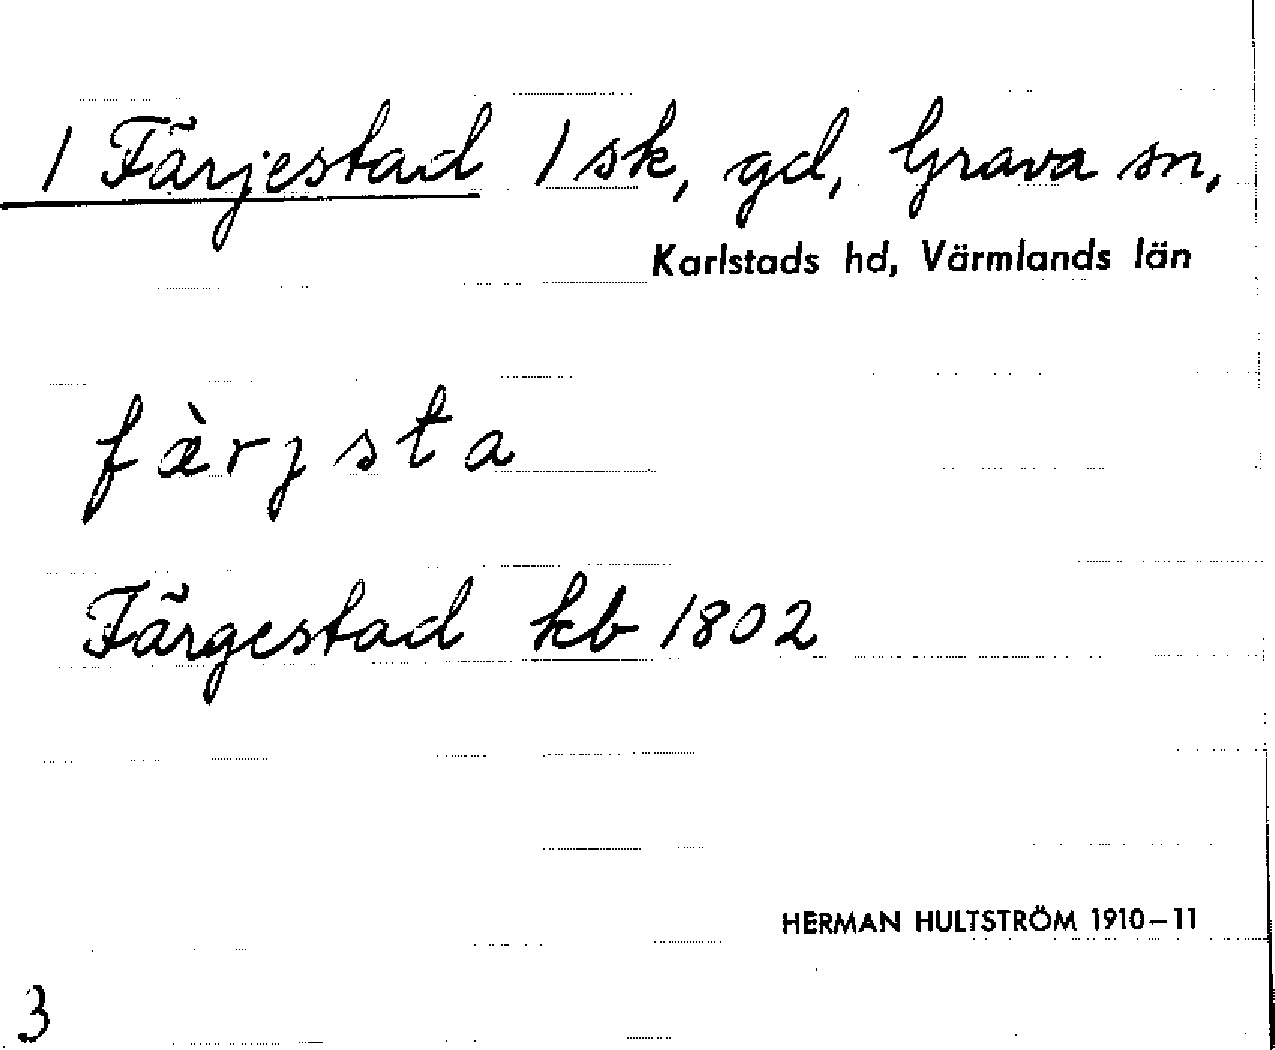 1 Färjestad 1 sk, gd, Grava sn,
Karlstads hd, Värmlands län
fæ̀rjsta
Färgestad kb 1802
HERMAN HULTSTRÖM 1910–11
3